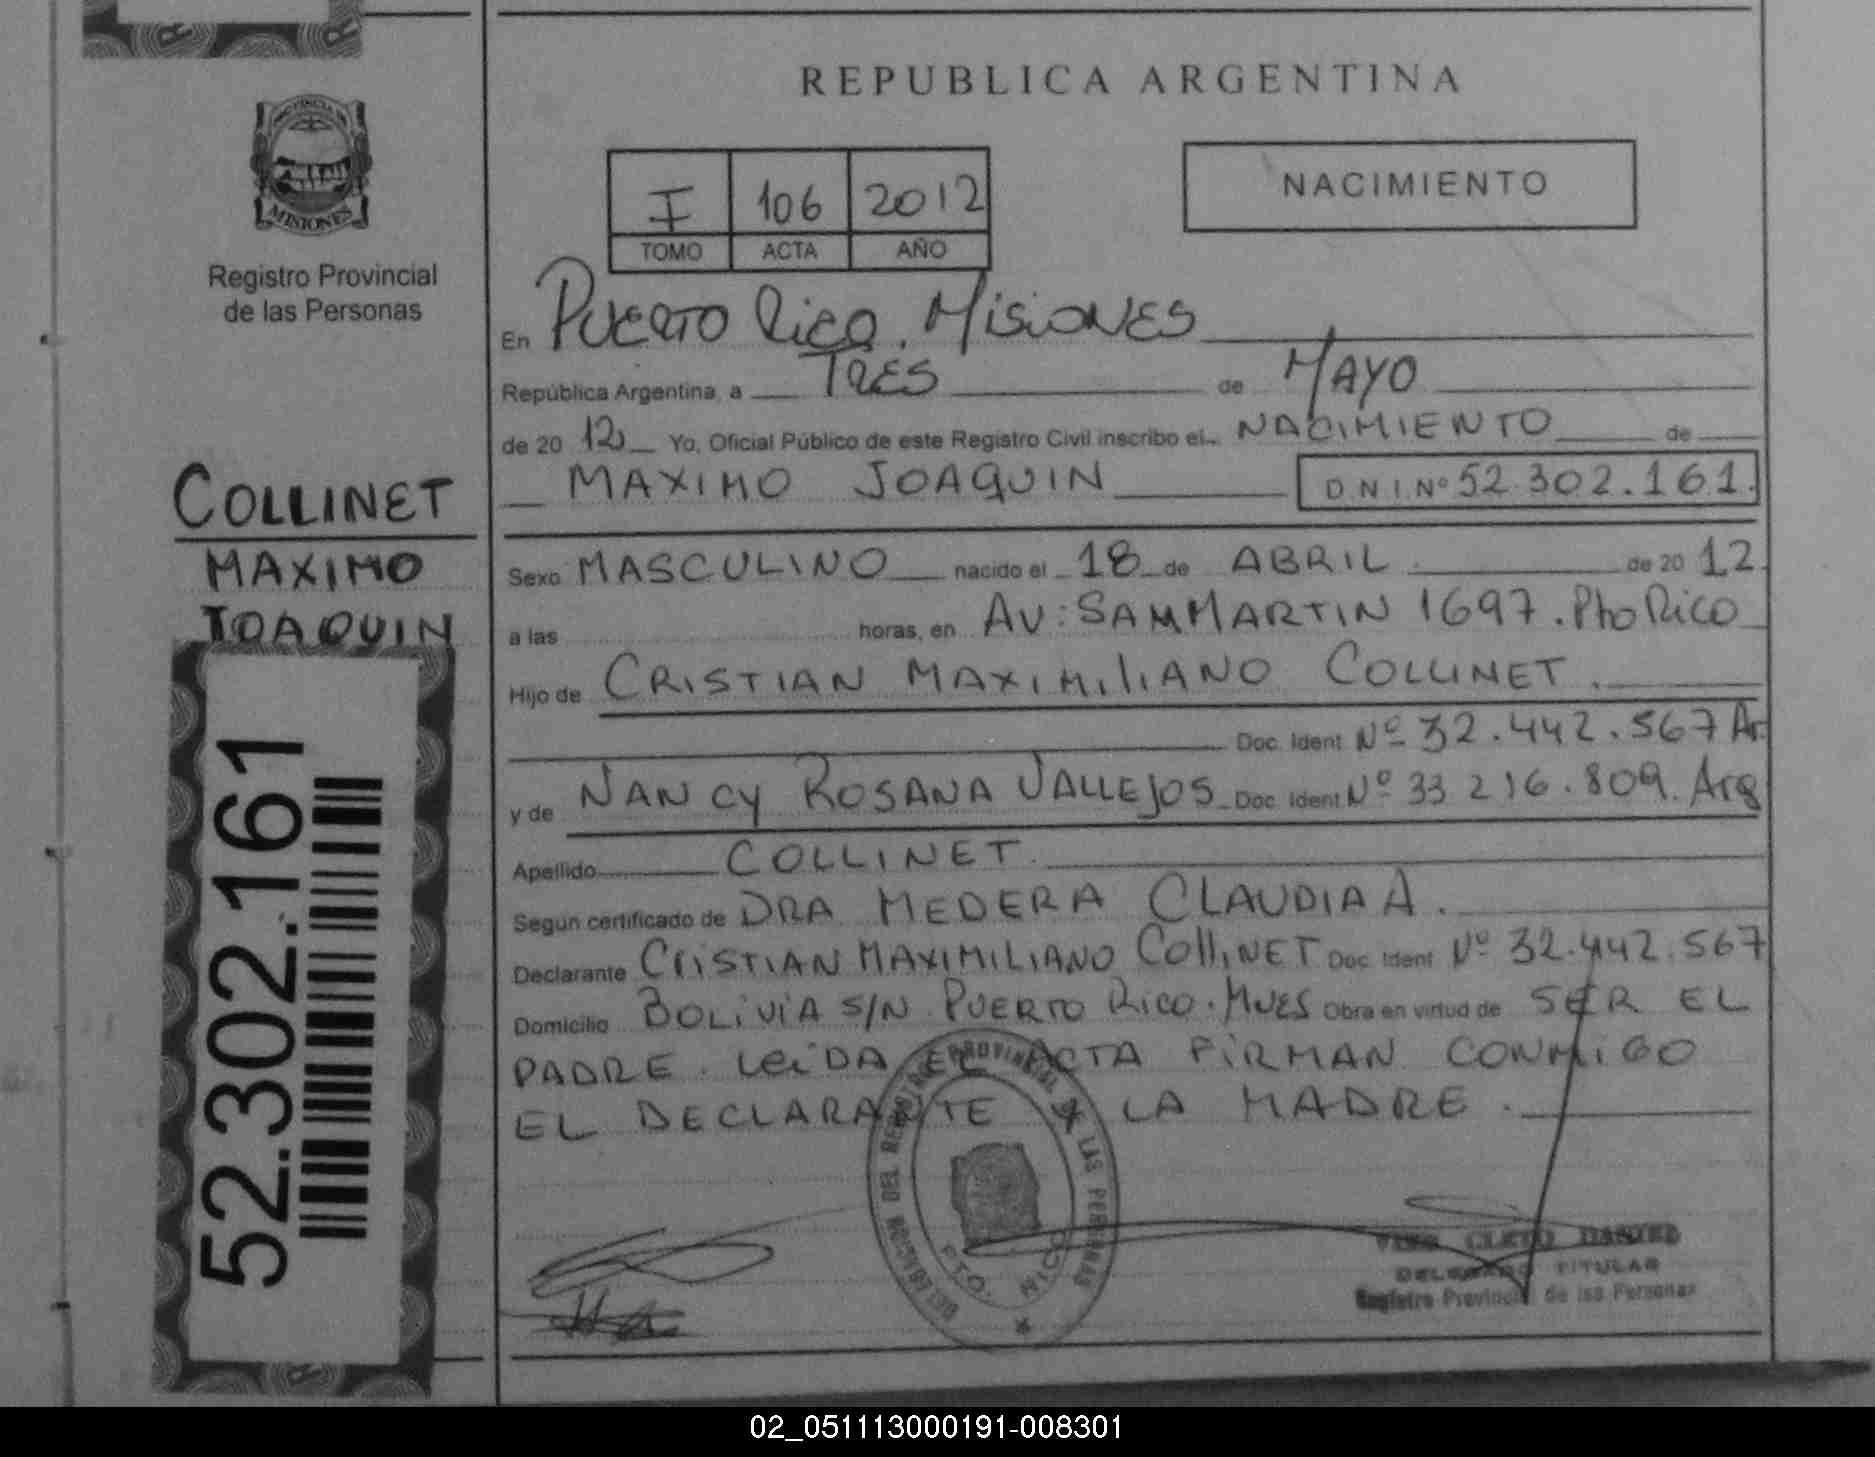 REPUBLICA ARGENTINA
PROVINCIA DE
MISIONES
Registro Provincial
de las Personas
I 106 2012
TOMO ACTA AÑO
NACIMIENTO
En Puerto Rico. Misiones
República Argentina, a Tres de Mayo
de 2012 Yo, Oficial Público de este Registro Civil inscribo el NACIMIENTO de
MAXIMO JOAQUIN D.N.I. Nº 52.302.161.
COLLINET
MAXIMO
JOAQUIN
52.302.161
Sexo MASCULINO nacido el 18 de ABRIL de 2012
a las horas, en AV: SAMMARTIN 1697. Pto Rico
Hijo de CRISTIAN MAXIMILIANO COLLINET.
Doc. Ident Nº 32.442.567 Ar.
y de NANCY ROSANA VALLEJOS Doc. Ident Nº 33 216.809. Arg
Apellido COLLINET.
Según certificado de DRA MEDERA CLAUDIA A.
Declarante CRISTIAN MAXIMILIANO COLLINET Doc. Ident Nº 32.442.567
Domicilio BOLIVIA S/N PUERTO RICO. MNES Obra en virtud de SER EL
PADRE. LEIDA EL ACTA FIRMAN CONMIGO
EL DECLARANTE Y LA MADRE.
DELEGACION DEL REGISTRO PROVINCIAL DE LAS PERSONAS
PTO. RICO
CLETO DANIEL
DELEGADO TITULAR
Registro Provincial de las Personas
02_051113000191-008301